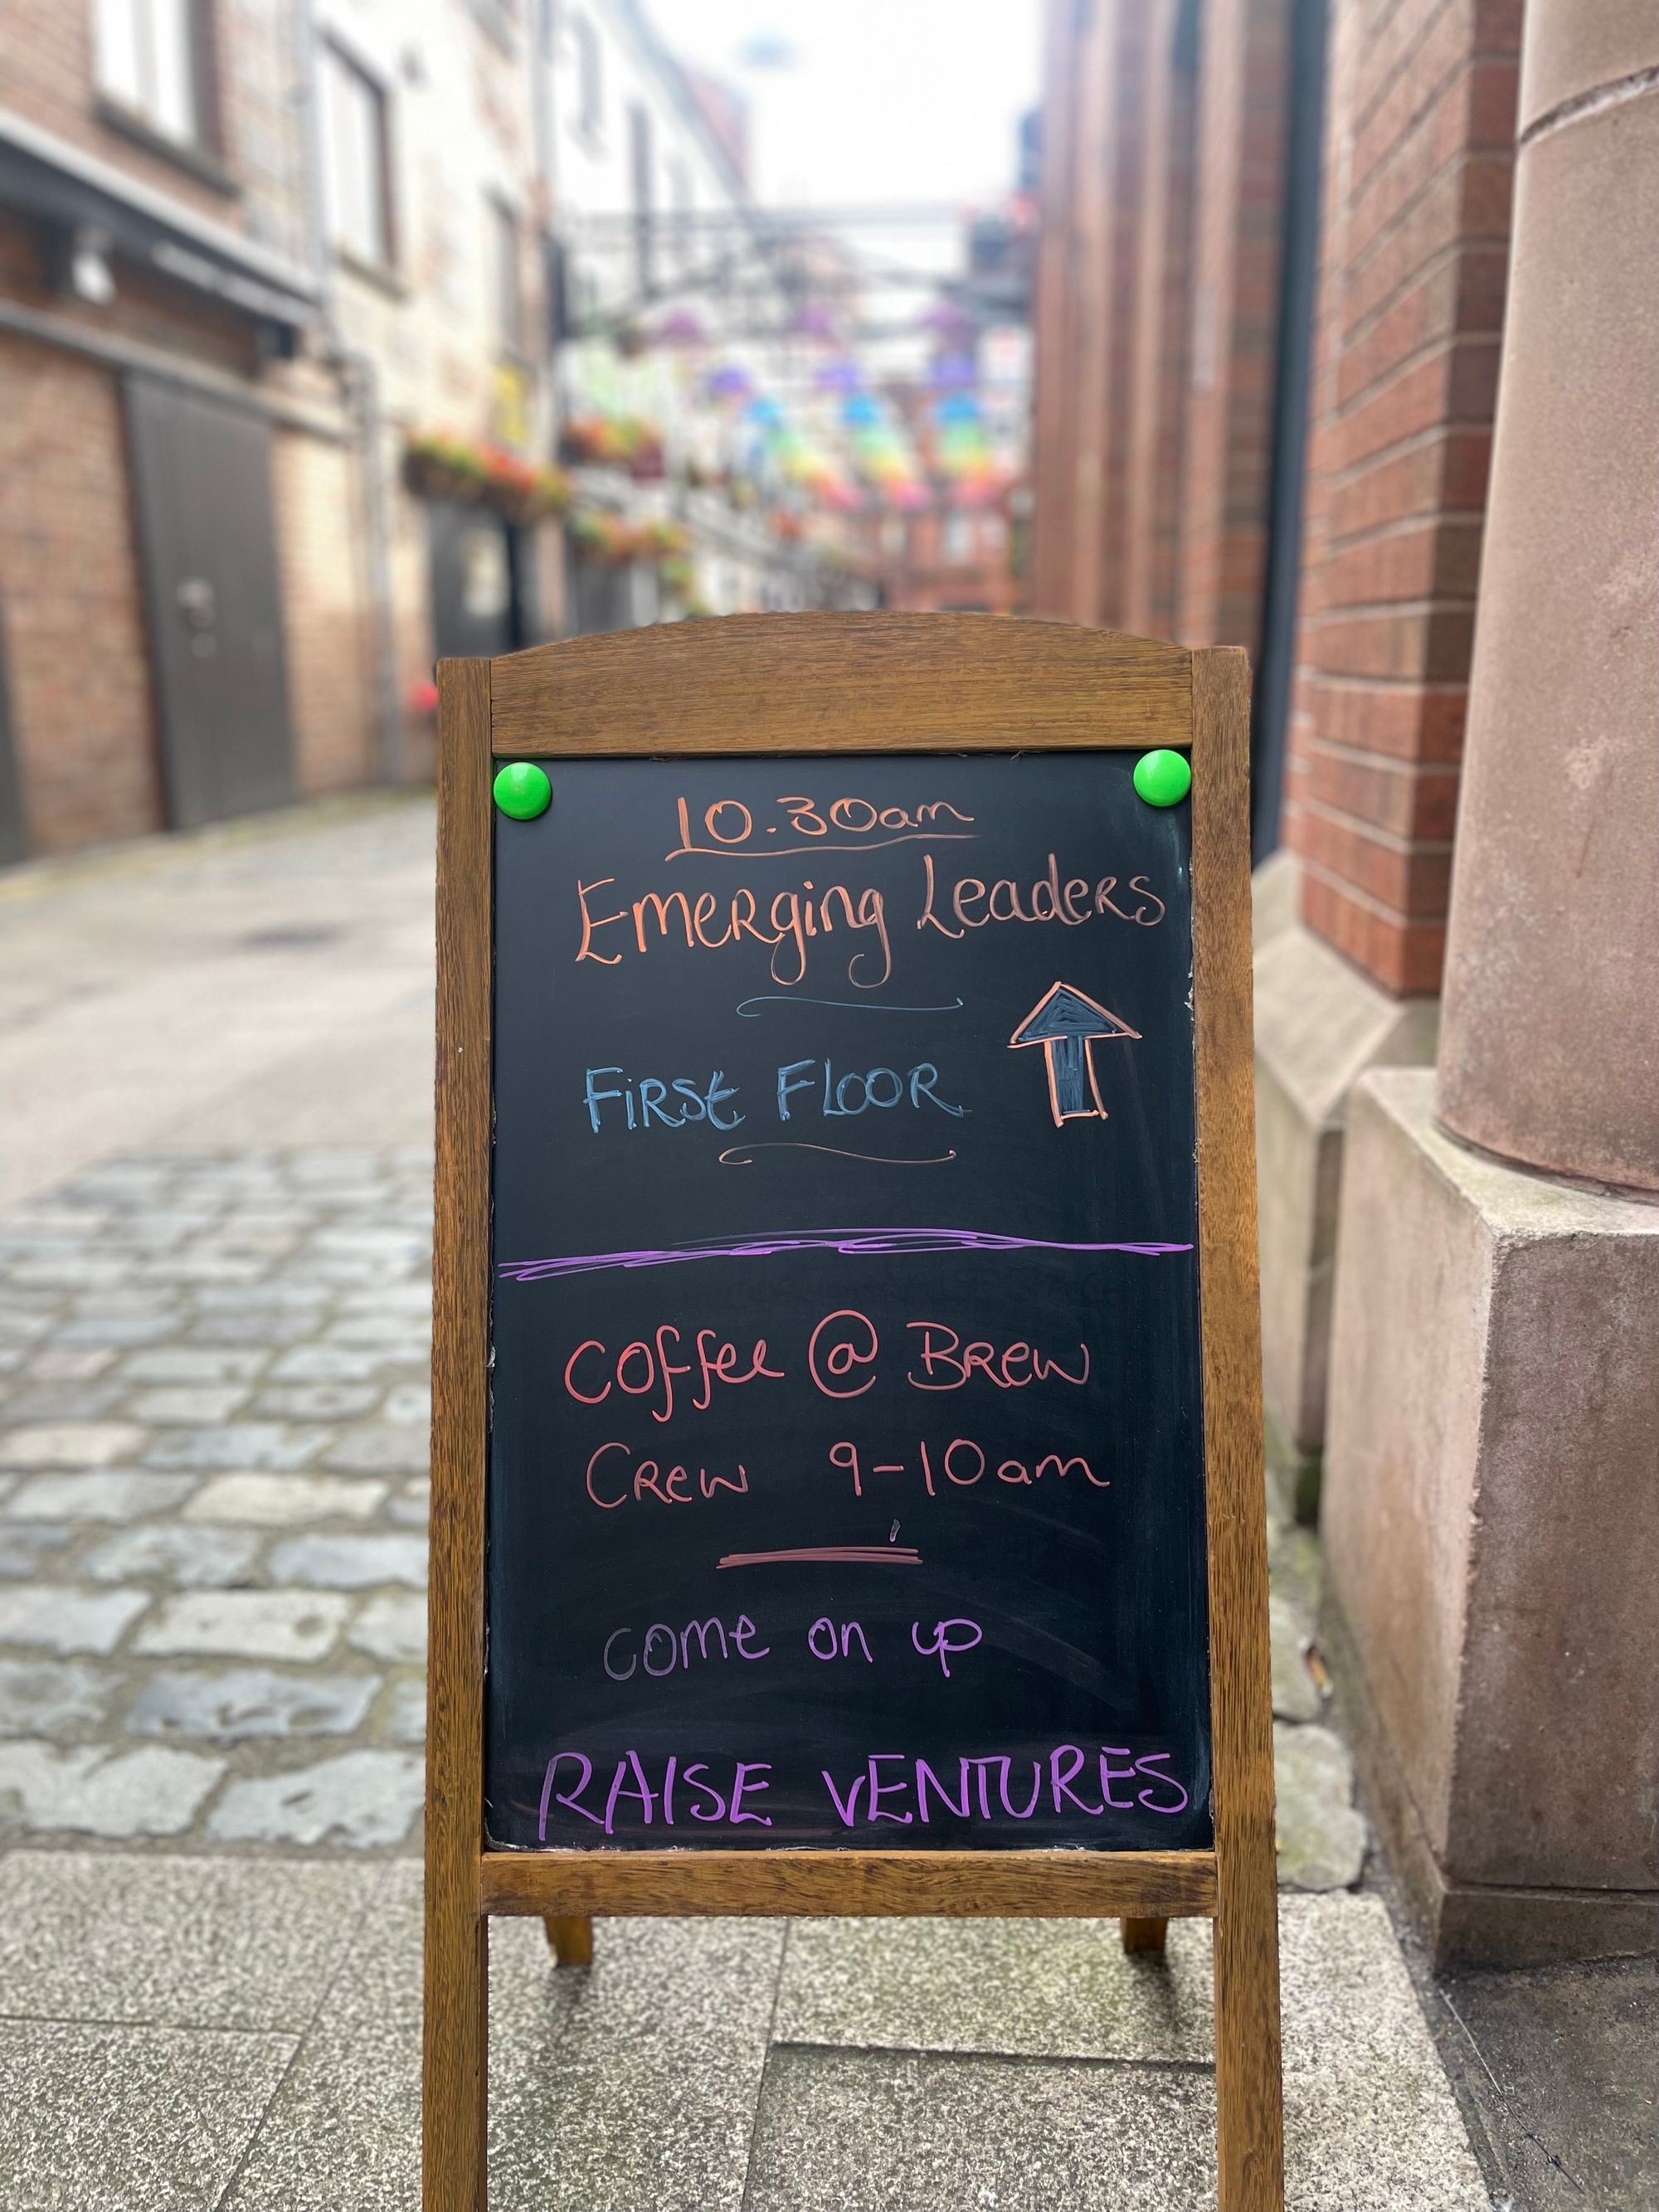 10.30am
Emerging Leaders
First Floor
Coffee @ Brew
Crew 9-10am
come on up
RAISE VENTURES